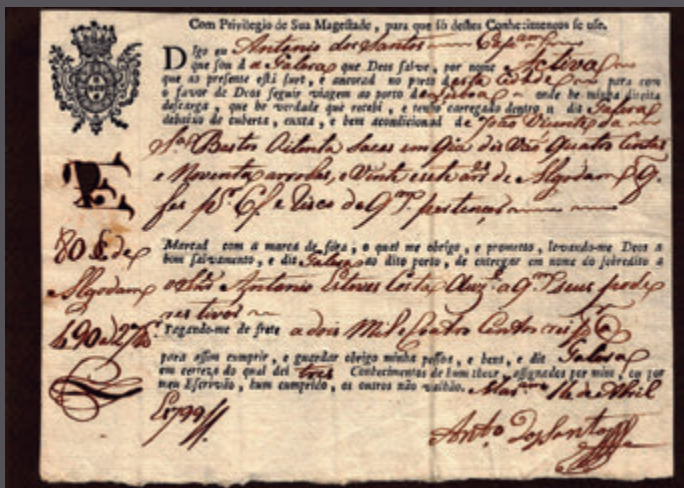 Com Privilegio de Sua Magestade, para que só destes Conhecimentos se use.
DIgo eu Antonio dos Santos Cap.am
que sou d a Galera que Deos salve, por nome Activa
que ao presente está surt, e ancorad no porto desta Cidade para com
o favor de Deos seguir viagem ao porto de Lisboa onde he minha direita
descarga, que he verdade que recebi, e tenho carregado dentro n dit Galera
debaixo de cuberta, enxuta, e bem acondicionad de João Vicente da
S.a Bastos Oitenta sacas em Que Quatro Centas
e Noventa arrobas, e Vinte e sete de Algodam q.
fes p.r C. e Risco de q.m pertencer
80 S. de
Algodam
490 @ 27
Marcad com a marca de fóra, o qual me obrigo, e prometto, levando-me Deos a
bom salvamento, e dit Galera ao dito porto, de entregar em nome do sobredito a
Antonio Esteves Costa a q.m seus pode
res tiver
Pagando-me de frete a dois Mil e Coatro Centos reis p.r @
para assim cumprir, e guardar obrigo minha pessoa, e bens, e dit Galera
em certeza do qual dei tres Conhecimentos de hum theor, assignados por mim, ou por
meu Escrivão, hum cumprido, os outros não valhão. 14 de Abril
1799
Ant.o dos Santos